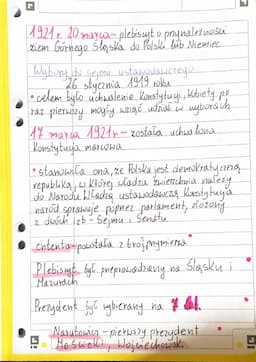 1921 r. 20 marca - plebiscyt o przynależności
ziem Górnego Śląska do Polski lub Niemiec
Wybory do sejmu ustawodawczego
26 stycznia 1919 roku
• celem było uchwalenie Konstytucji, kobiety po
raz pierwszy mogły wziąć udział w wyborach
17 marca 1921 r - została uchwalona
Konstytucja marcowa
• stanowiła ona, że Polska jest demokratyczną
republiką, w której władza zwierzchnia należy
do Narodu. Władzę ustawodawczą
naród sprawuje poprzez parlament, złożony
z dwóch izb - Sejmu i Senatu
ententa - powstała z trójprzymierza
Plebiscyt był przeprowadzany na Śląsku i
Mazurach
Prezydent był wybierany na 7 lat.
Narutowicz - pierwszy prezydent
Mościcki, Wojciechowski